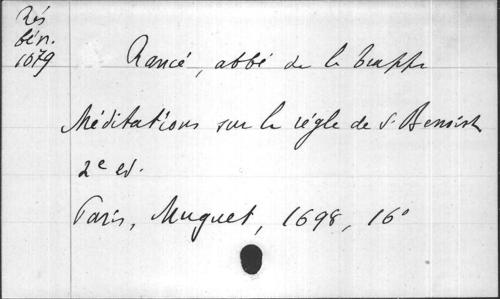 Rés
bén.
1079
Rancé, abbé de la Trappe
Méditations sur la règle de S. Benoist
2e ed.
Paris, Muguet, 1698, 16°